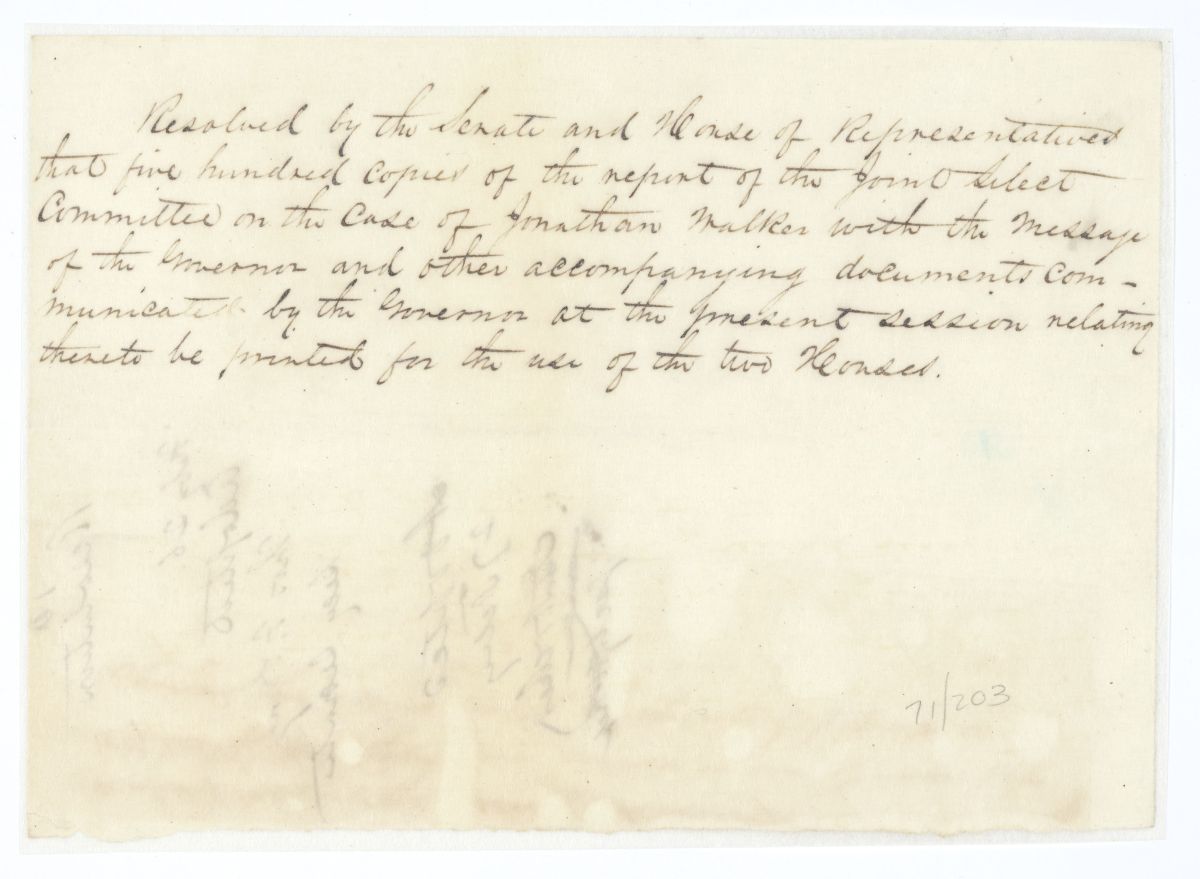 Resolved by the Senate and House of Representatives
that five hundred copies of the report of the Joint Select
Committee on the case of Jonathan Walker with the Message
of the Governor and other accompanying documents com-
municated by the Governor at the present session relating
thereto be printed for the use of the two Houses.
71/203